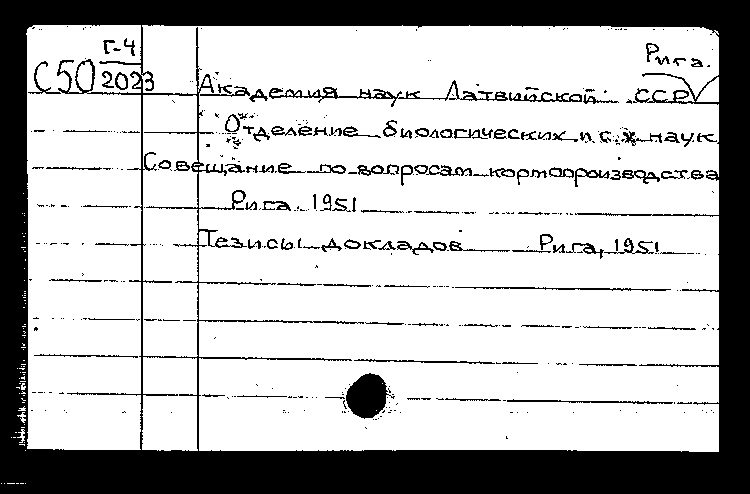 Г-4
С50 2023
Рига.
Академия наук Латвийской ССР
Отделение биологических и с.х. наук
Совещание по вопросам кормопроизводства
Рига. 1951
Тезисы докладов Рига, 1951